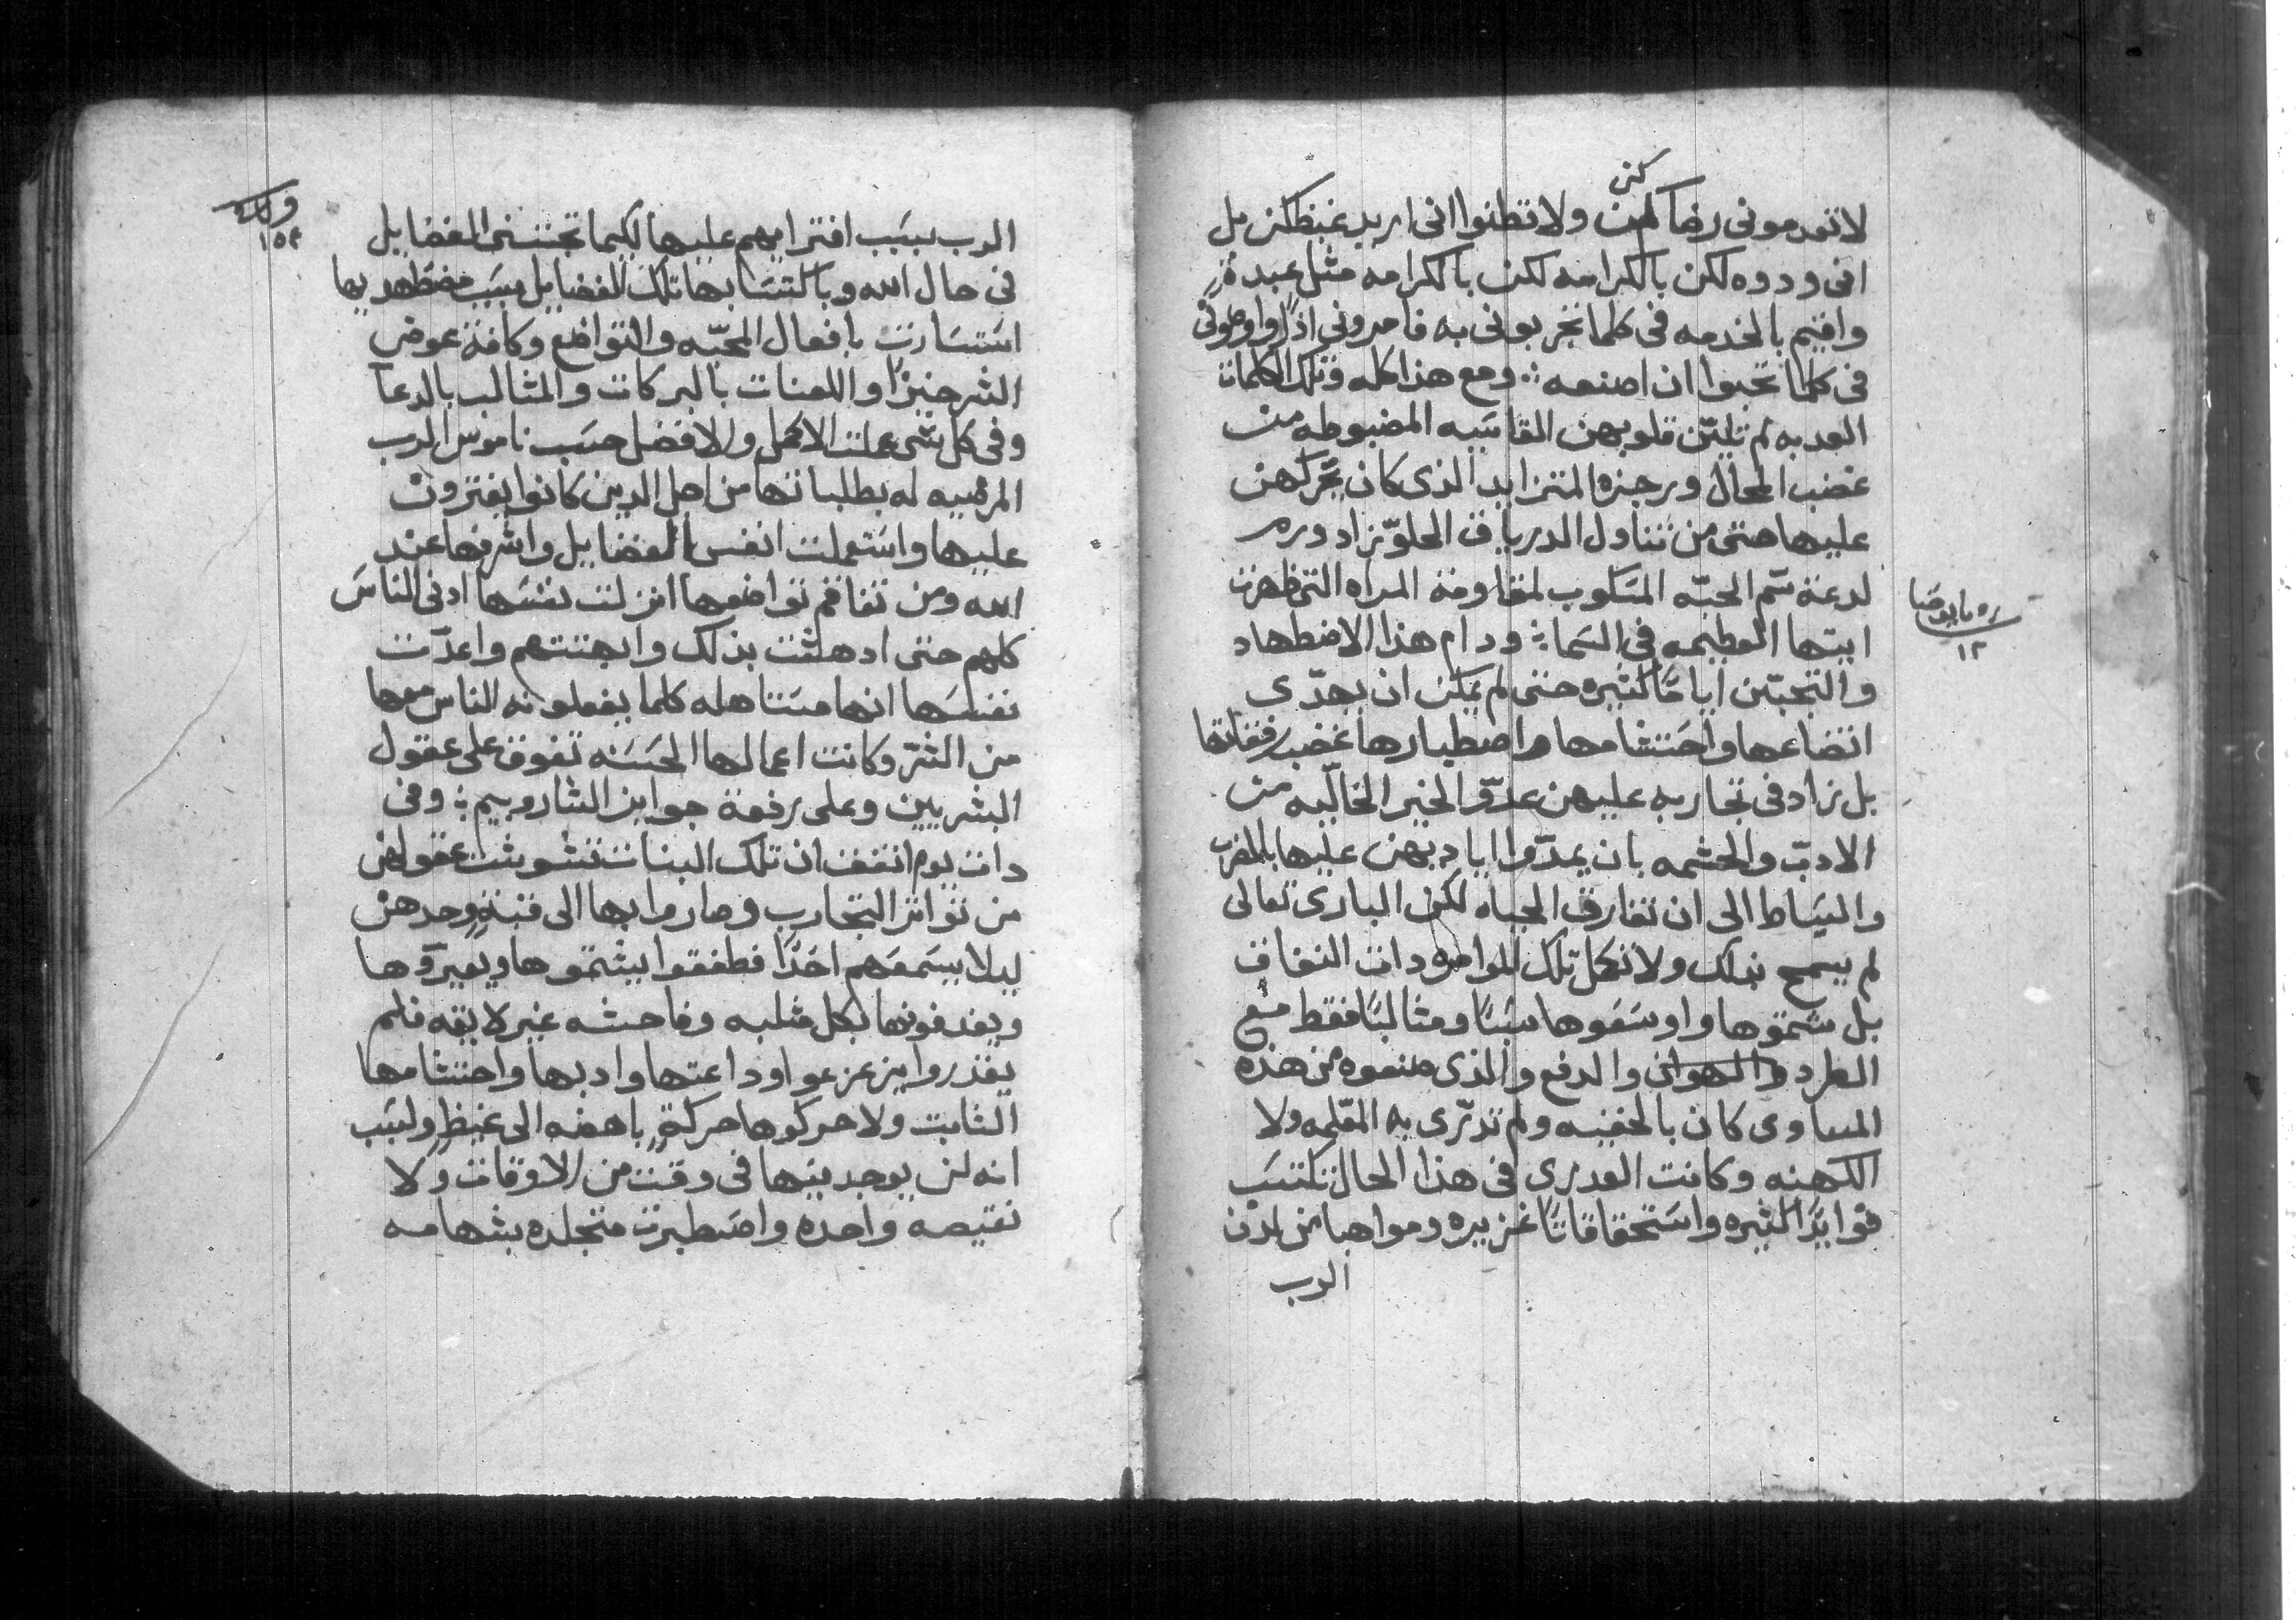 كن
لا تعدموني رضاكن ولا تظنوا اني اريد غيظكن بل
اني ودوده لكن بالكرامه لكن بالكرامه مثل عبدةٍ
واقيم بالخدمه في كلما تجربوني به فامروني اذًا واوصوني
في كلما تحبوا ان اصنعه ؞ ومع هذا كله وتلك الكلمات
العدبه لم تليّن قلوبهن القاسيه المضبوطه من
غضب المحال ورجزه المتزايد الذي كان يحركهن
عليها حتى من تناول الدرياق الحلو زاد ورم
لدغة سّم المحيّه المسكوب لمقاومة المراه التي ظهرت
ايتها العظيمه في السما ؞ ودام هذا الاضطهاد
والتجبّن ايامًا كثيره حتى لم يمكن ان يهدّي
اتضاعها واحتشامها واصطبارها غضب رفقاتها
بل زاد في تجاربه عليهن عدوّ الخير الخاليه من
الادب والحشمه بان يمدّوا اياديهن عليها بالضرب
والسياط الى ان تفارق الحياه لكن الباري تعالى
لم يسمح بذلك ولا تكل تلك المواضره دات النفاق
بل شمتوها واوسقوها سببًا ومثالبًا فقط مع
الطرد والهوان والدفع والذي صنعوه من هذه
المساوي كان بالخفيه ولم تدرّي به المعّلمه ولا
الكهنه وكانت العدري في هذا الحال تكتسب
فوايدًا كثيره واستحقاقاتًا غزيره ومواهبا من لدن
الرب
ره ما يوصا
١٢
ولك
١٥٤
الرب بسبب افترايهم عليها لكيما تجتنى الفضايل
في حال الله وباكتسابها تلك الفضايل بسبب مضطهديها
استسارت بافعال المحبّه والتواضع وكافة عوض
الشر خيرًا واللعنات بالبركات والمثالب بالدعا
وفي كل شي عملت الاكمل والافضل حسب ناموس الرب
المرضيه له بطلباتها من اجل الدين كانوا يفترون
عليها واستعملت انفس الفضايل واشرفها عند
الله ومن تفاقم تواضعها انزلت نفسها ادنى الناس
كلهم حتى ادهشت بذلك وابهتتهم واعدّت
نفسها انها مستاهله كلما يفعلونه الناس معها
من الشرّ وكانت اعمالها الحسنه تفوق على عقول
البشريين وعلى رفعة جوايز الشاروبيم ؞ وفي
دات يوم اتفق ان تلك البنات تشوشت عقولهن
من تواتر التجارب وصاروا بها الى قبةٍ وحدهن
ليلا يسمعهم احدًا فطفقوا يشتموها ويعيروها
ويقدفونها بكل مثلبه وفاحشه غير لايقه فلم
يقدروا يزعزعوا وداعتها وادبها واحتشامها
الثابت ولا حركوها حركةٍ باهضه الى غيظٍ ولسبب
انه لن يوجد فيها في وقت من الاوقات ولا
نقيصه واحده واصطبرت متجلده بشهامه